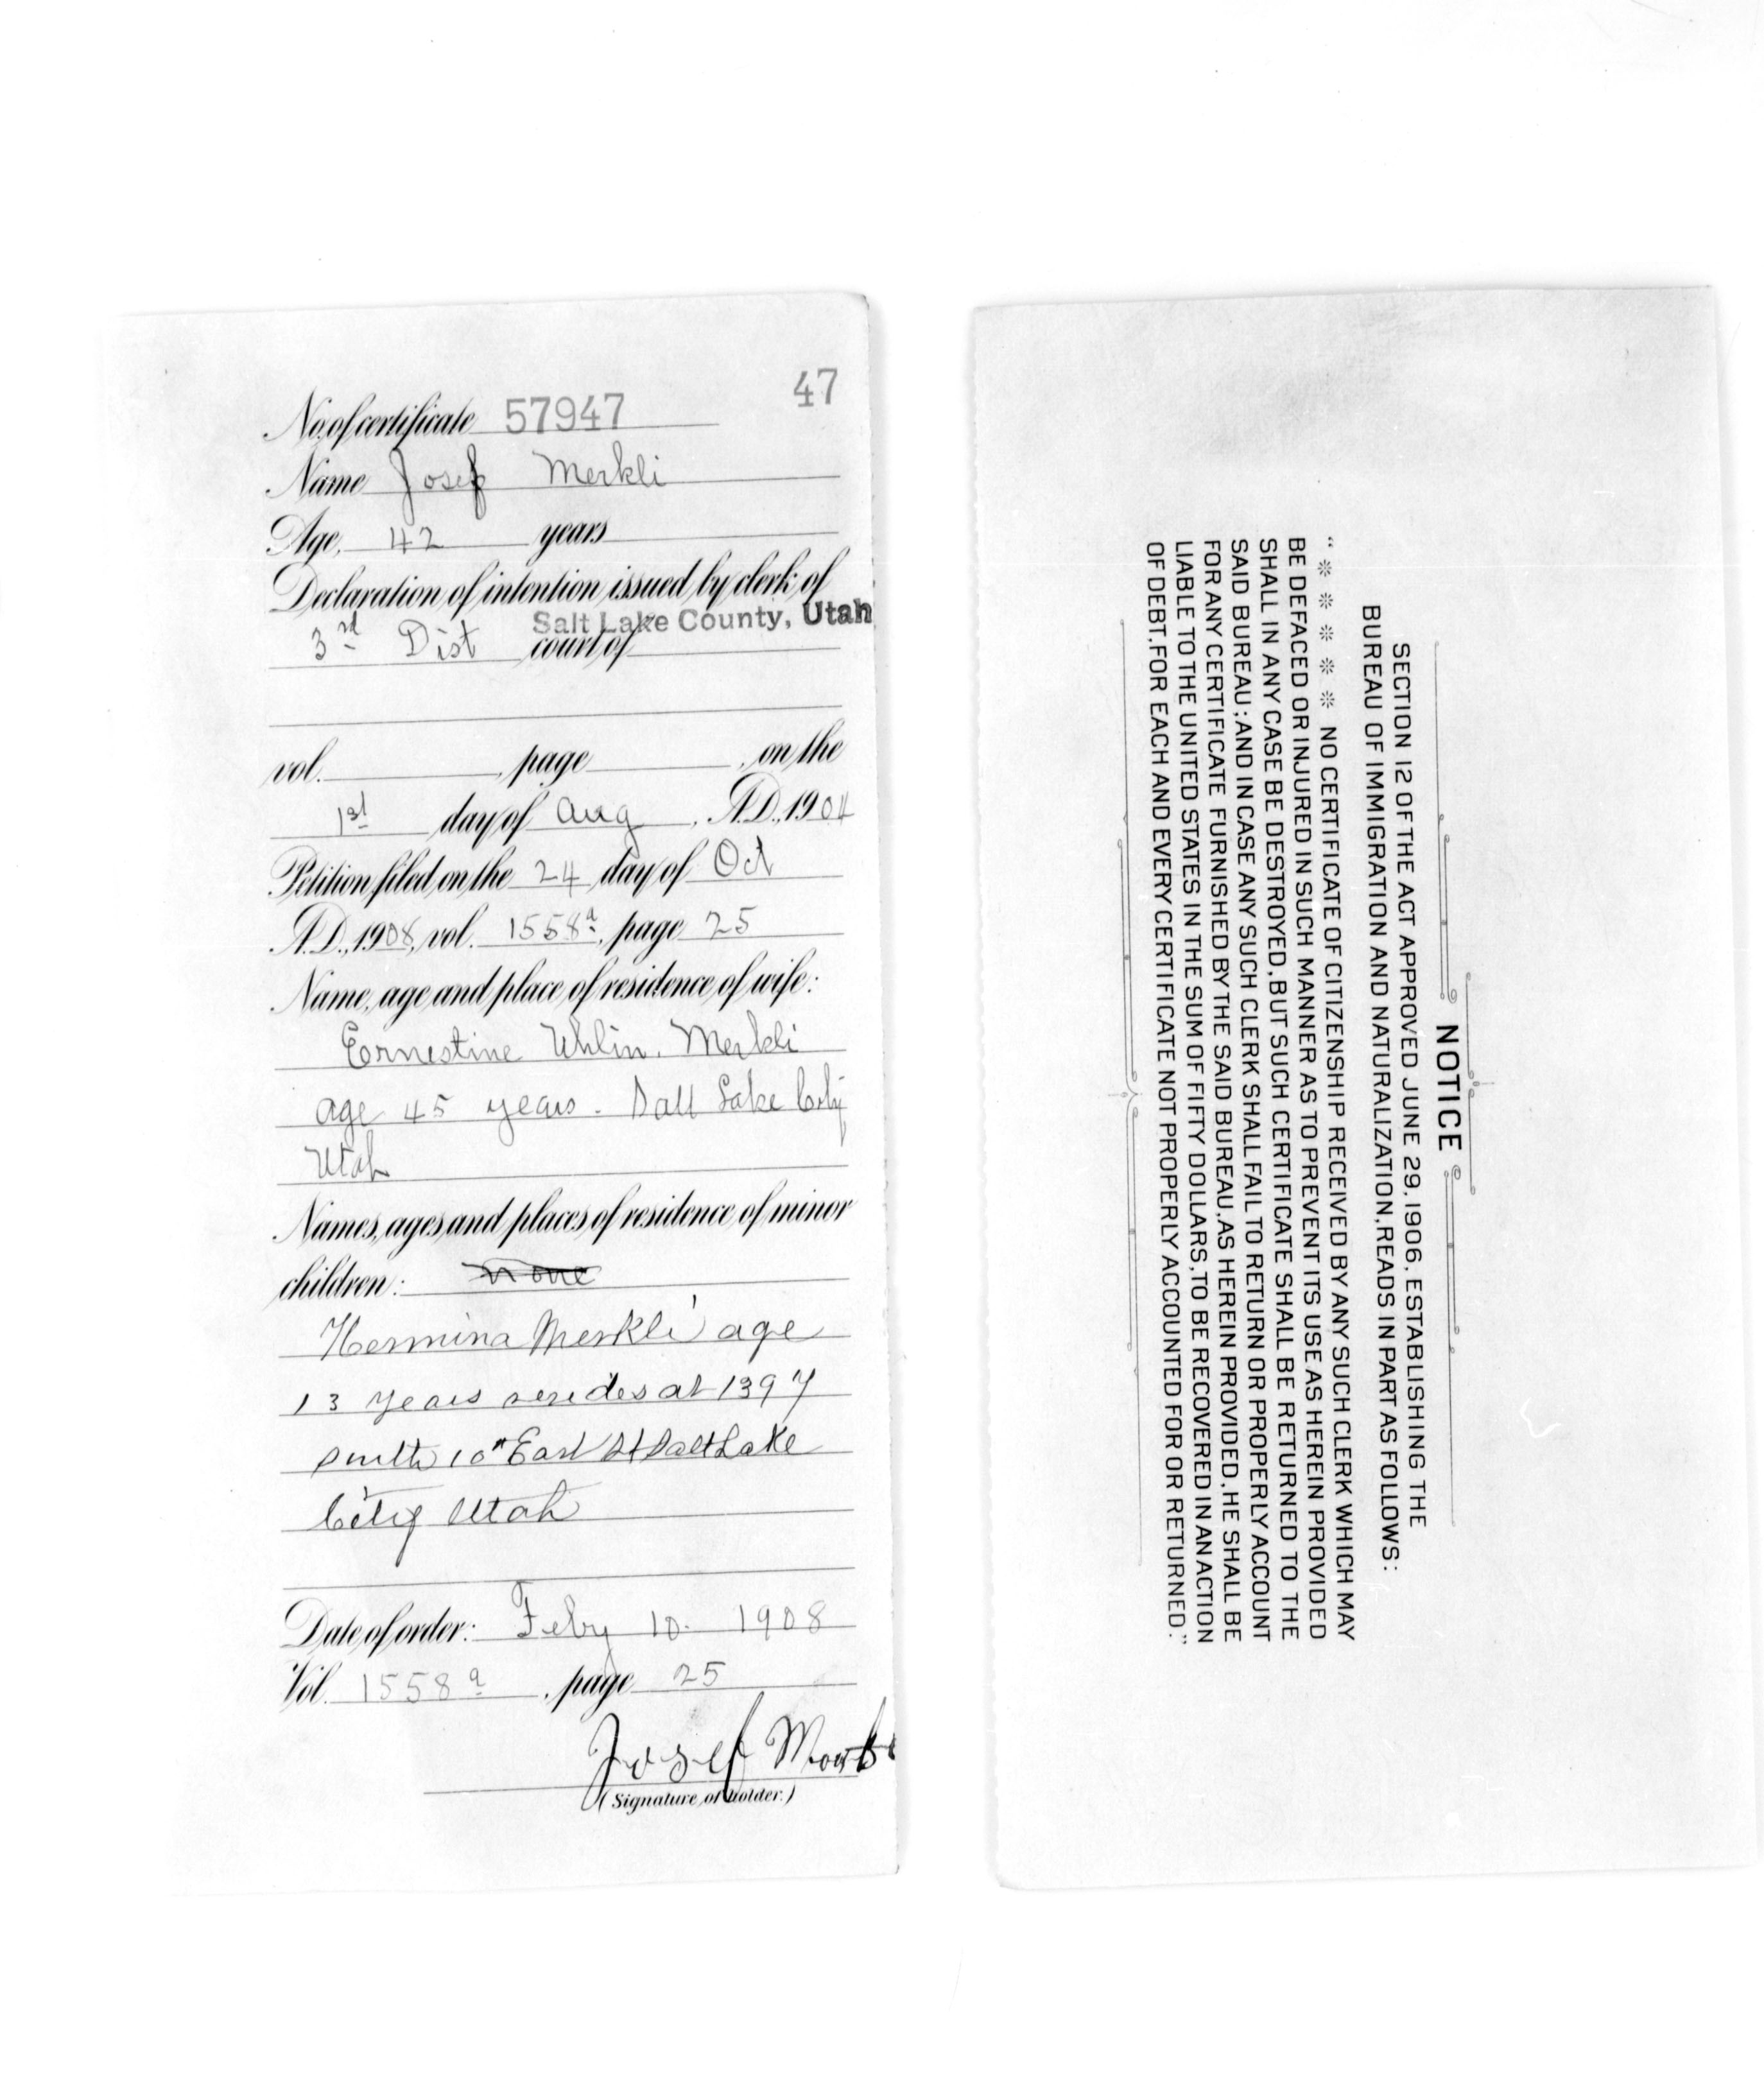 47
No. of certificate 57947
Name Josef Merkli
Age, 42 years
Declaration of intention issued by clerk of
Salt Lake County, Utah
3rd Dist court of
vol. , page , on the
1st day of Aug , A.D., 1904
Petition filed on the 24 day of Oct
A.D., 1908, vol. 1558a, page 25
Name, age and place of residence of wife:
Ernestine Uhlin. Merkli
age 45 years. Salt Lake City
Utah
Names, ages and places of residence of minor
children: none
Hermina Merkli age
13 years resides at 1397
south 10th East St Salt Lake
City Utah
Date of order: Feby 10. 1908
Vol. 1558a, page 25
Josef
(Signature of holder.)
NOTICE
SECTION 12 OF THE ACT APPROVED JUNE 29, 1906, ESTABLISHING THE
BUREAU OF IMMIGRATION AND NATURALIZATION, READS IN PART AS FOLLOWS:
“ * * * * * NO CERTIFICATE OF CITIZENSHIP RECEIVED BY ANY SUCH CLERK WHICH MAY
BE DEFACED OR INJURED IN SUCH MANNER AS TO PREVENT ITS USE AS HEREIN PROVIDED
SHALL IN ANY CASE BE DESTROYED, BUT SUCH CERTIFICATE SHALL BE RETURNED TO THE
SAID BUREAU; AND IN CASE ANY SUCH CLERK SHALL FAIL TO RETURN OR PROPERLY ACCOUNT
FOR ANY CERTIFICATE FURNISHED BY THE SAID BUREAU, AS HEREIN PROVIDED, HE SHALL BE
LIABLE TO THE UNITED STATES IN THE SUM OF FIFTY DOLLARS, TO BE RECOVERED IN AN ACTION
OF DEBT, FOR EACH AND EVERY CERTIFICATE NOT PROPERLY ACCOUNTED FOR OR RETURNED.”